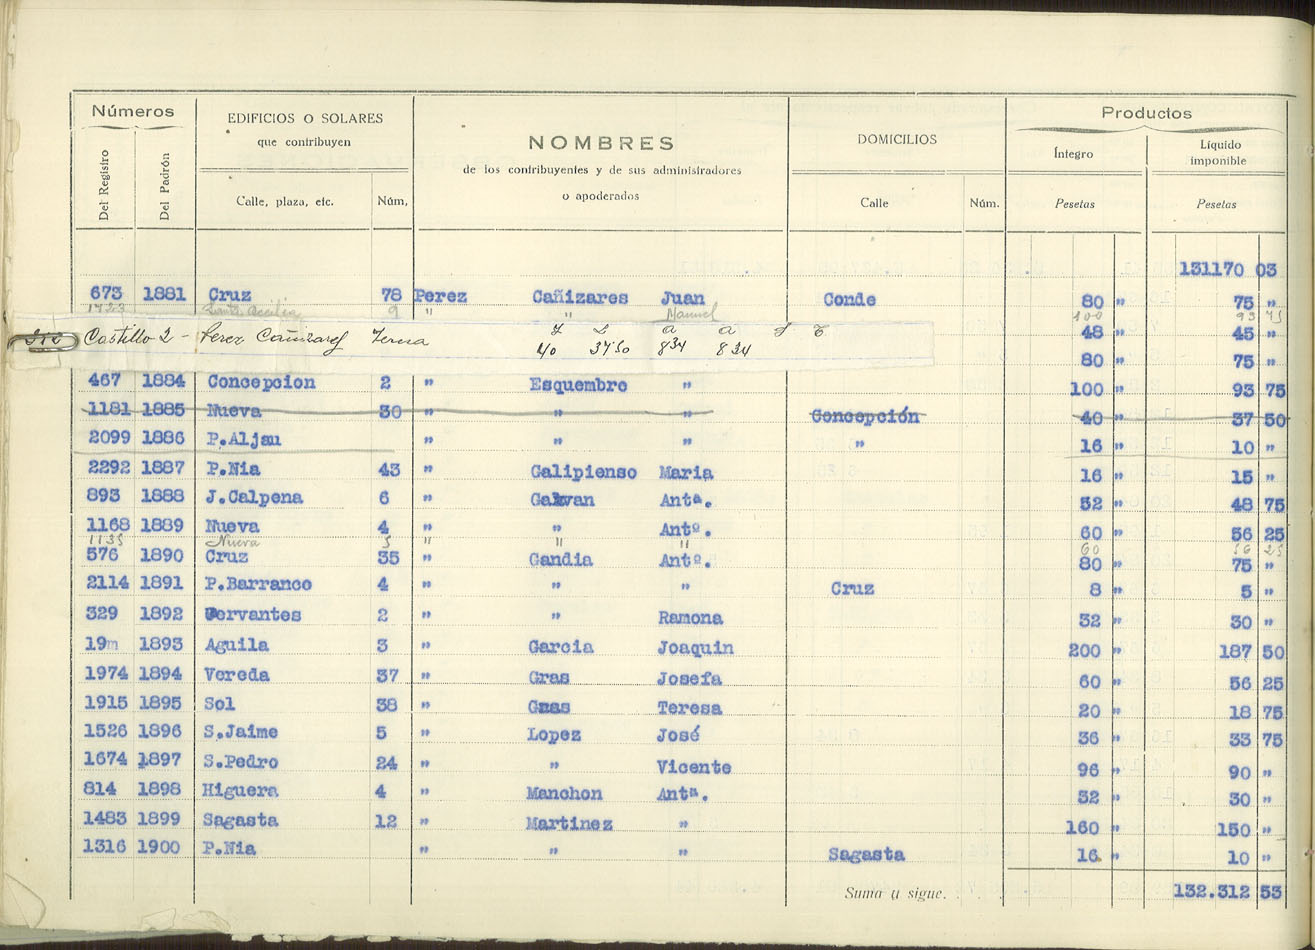 Números EDIFICIOS O SOLARES que contribuyen NOMBRES de los contribuyentes y de sus administradores o apoderados DOMICILIOS Productos
Del Registro Del Padrón Calle, plaza, etc. Núm, Calle Núm. Íntegro Pesetas Líquido imponible Pesetas
131170 03
673 1881 Cruz 78 Perez Cañizares Juan Conde 80 " 75 "
1723 Santa Cecilia 9 " " Manuel 100 93 75
Castillo 2 - Perez Cañizares Teresa
40 3750 834 834
48 " 45 "
80 " 75 "
467 1884 Concepcion 2 " Esquembre " 100 " 93 75
1181 1885 Nueva 30 " " " Concepción 40 " 37 50
2099 1886 P.Aljau " " " " 16 " 10 "
2292 1887 P.Nia 43 " Galipienso Maria 16 " 15 "
893 1888 J.Calpena 6 " Galvan Antª. 52 " 48 75
1168 1889 Nueva 4 " " Antº. 60 " 56 25
1135 Nueva 5 " " " 60 56 25
576 1890 Cruz 35 " Gandia Antº. 80 " 75 "
2114 1891 P.Barranco 4 " " " Cruz 8 " 5 "
329 1892 Cervantes 2 " " Ramona 32 " 30 "
19m 1893 Aguila 3 " Garcia Joaquin 200 " 187 50
1974 1894 Vereda 37 " Gras Josefa 60 " 56 25
1915 1895 Sol 38 " Gras Teresa 20 " 18 75
1526 1896 S.Jaime 5 " Lopez José 36 " 33 75
1674 1897 S.Pedro 24 " " Vicente 96 " 90 "
814 1898 Higuera 4 " Manchon Antª. 32 " 30 "
1483 1899 Sagasta 12 " Martinez " 160 " 150 "
1316 1900 P.Nia " " " Sagasta 16. " 10 "
Suma y sigue. 132.312 53